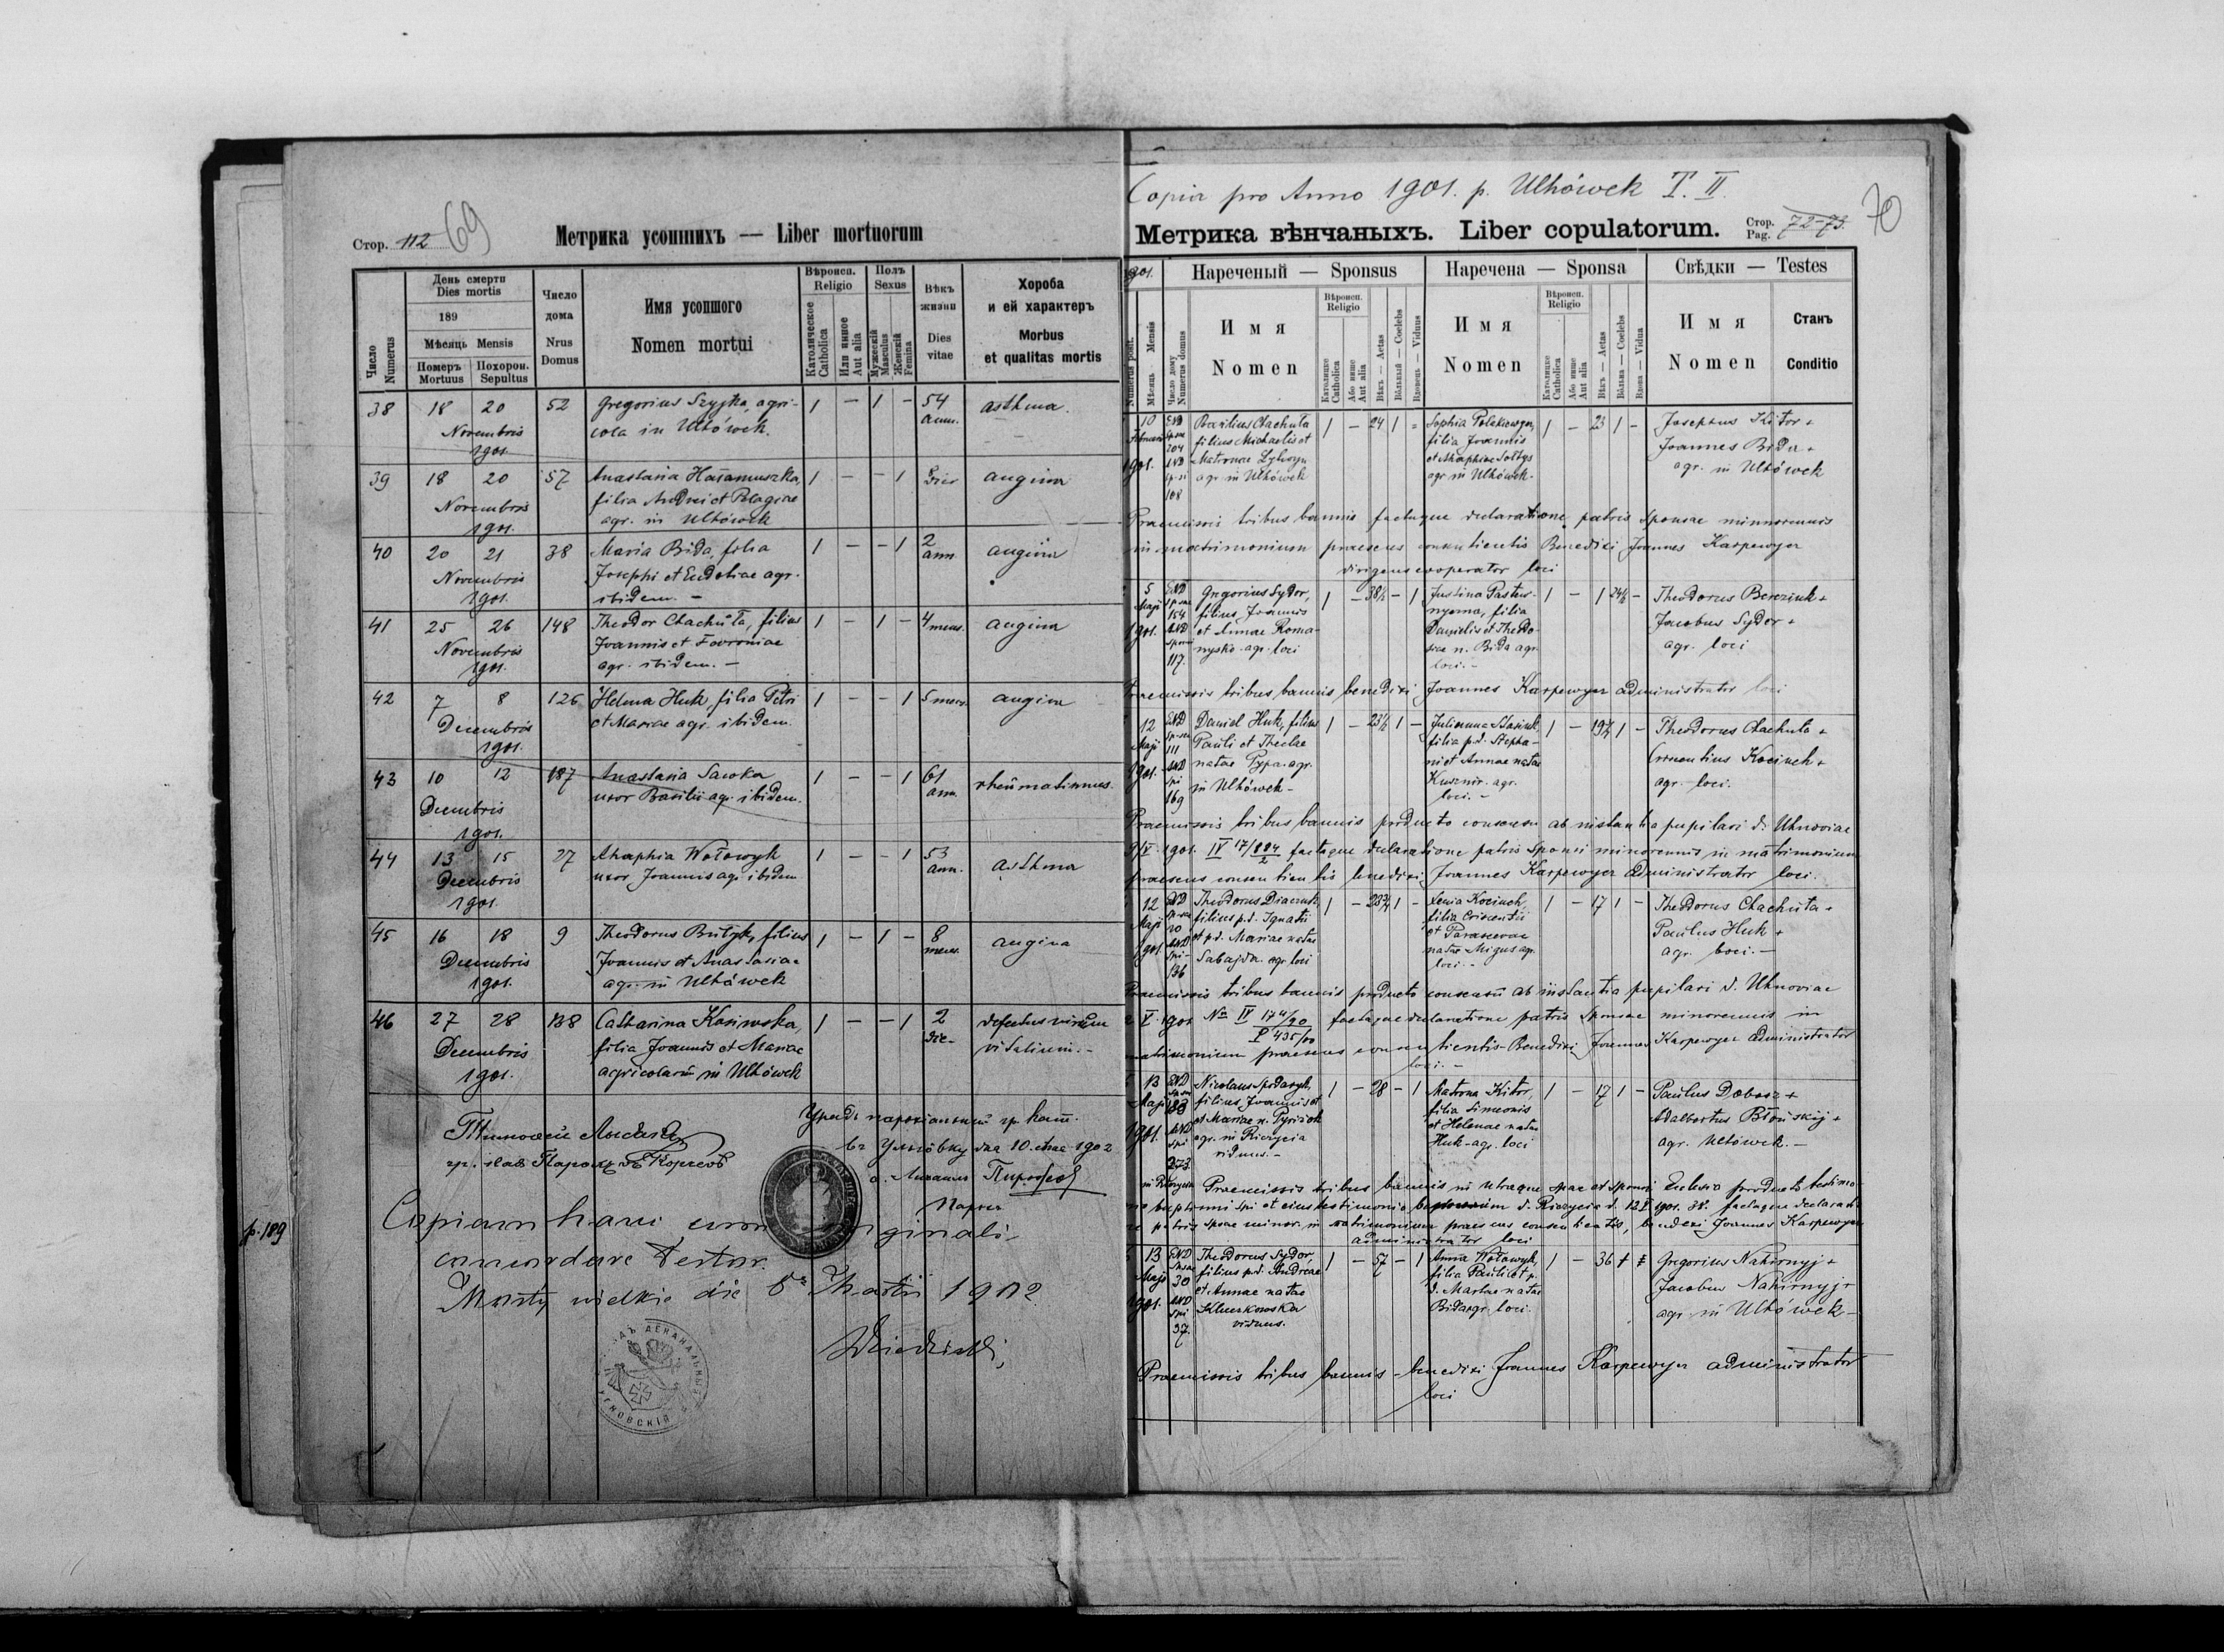 Стор. 112 69
Метрика усопшихъ — Liber mortuorum
Число
Numerus
День смерти
Dies mortis
189
Мѣсяць Mensis
Померъ
Mortuus
Похорон.
Sepultus
Число
дома
Nrus
Domus
Имя усопшого
Nomen mortui
Вѣроисп.
Religio
Католическое
Catholica
Или инное
Aut alia
Полъ
Sexus
Мужескій
Masculus
Женскій
Femina
Вѣкъ
жизни
Dies
vitae
Хороба
и ей характеръ
Morbus
et qualitas mortis
38 18 20 52 Gregorius Szyjka, agri- 1 — 1 — 54 asthma.
Novembris cola in Uhówek. ann.
1901.
39 18 20 57 Anastasia Haramuszka, 1 — — 1 8 angina
Novembris filia Andrei et Pelagiae dies
1901. agr. in Uhówek
40 20 21 38 Maria Bida, filia 1 — — 1 2 angina
Novembris Josephi et Eudokiae agr. ann.
1901. ibidem. —
41 25 26 148 Theodor Chachuła, filius 1 — 1 — 4 mens. angina
Novembris Joannis et Fevroniae
1901. agr. ibidem. —
42 7 8 126 Helena Huk, filia Petri 1 — — 1 5 mens. angina
Decembris et Mariae agr. ibidem.
1901.
43 10 12 187 Anastasia Sawka 1 — — 1 61 rheumatismus.
Decembris uxor Basilii agr. ibidem. ann.
1901.
44 13 15 27 Ahaphia Wołowyk 1 — — 1 53 asthma
Decembris uxor Joannis agr. ibidem ann.
1901.
45 16 18 9 Theodorus Brityk, filius 1 — 1 — 8 angina
Decembris Joannis et Anastasiae mens.
1901. agr. in Uhówek
46 27 28 138 Catharina Kasiwska, 1 — — 1 2 defectus virium
Decembris filia Joannis et Mariae die- vitalium. —
1901. agricolarum in Uhówek
Урядъ парохіальный гр. кат.
въ Ульгôвку дня 10. 1902
Пароху
Copiam hanc cum originali
concordare testor.
Mosty wielkie die 5 Martii 1902
p. 189
Copia pro Anno 1901. p. Uhówek T. II.
Метрика вѣнчаныхъ. Liber copulatorum. Стор.
Pag. 72-73. 70
1901.
Нареченый — Sponsus
Наречена — Sponsa
Свѣдки — Testes
Numerus posit.
Мѣсяць — Mensis
Число дому
Numerus domus
Имя
Nomen
Вѣроисп.
Religio
Католицке
Catholica
Або инше
Aut alia
Вѣкъ — Aetas
Вôльный — Coelebs
Вдовець — Viduus
Имя
Nomen
Вѣроисп.
Religio
Католицке
Catholica
Або инше
Aut alia
Вѣкъ — Aetas
Вôльна — Coelebs
Вдова — Vidua
Имя
Nomen
Станъ
Conditio
10 Februarii 1901. 204 108
Basilius Chachuła
filius Michaelis et
Matronae
agr. in Uhówek
1 — 24 1 —
filia Joannis
et Ahaphiae Sołtys
agr. in Uhówek.
1 — 23 1 —
Josephus Kitor +
Joannes Bida +
agr. in Uhówek
Praemissis tribus bannis factaque declaratione patris Sponsae minorennis
in matrimonium praesens consentientis Benedixi Joannes Karpewycz
dirigens cooperator loci
5 Maji 1901. 154 117.
Gregorius Sydor,
filius Joannis
et Annae Roma-
nysko agr. loci
1 — 38½ — 1
Justina Pastus-
filia
Danielis et Theodo-
siae n. Bida agr.
loci. —
1 — 1 24½ —
Theodorus Bereziuk +
Jacobus Sydor +
agr. loci
Praemissis tribus bannis benedixi Joannes Karpewycz administrator loci
12 Maji 1901. 111 169
Daniel Huk, filius
Pauli et Theclae
natae Pypa agr.
in Uhówek —
1 — 23½ 1 —
Julianna Stasiuk,
filia p.d. Stepha-
ni et Annae natae
Kusznir. agr.
loci. —
1 — 19½ 1 —
Theodorus Chachuła +
Kociuch +
agr. loci.
Praemissis tribus bannis producto consensu ab instantia pupilari d. Uhnoviae
9/V. 1901. IV 17/894/2 factaque declaratione patris Sponsi minorennis in matrimonium
praesens consentientis benedixi Joannes Karpewycz Administrator loci.
12 Maji 1901 20 136
Theodorus Diaczuk,
filius p.d. Ignatii
et p.d. Mariae natae
Sabajda agr. loci
1 — 23¾ 1 —
Xenia Kociuch,
filia Criscentii
et Parascevae
natae Migus agr.
loci. —
1 — 17 1 —
Theodorus Chachuła +
Paulus Huk +
agr. loci. —
Praemissis tribus bannis producto consensu ab instantia pupilari d. Uhnoviae
V. 1901 No IV 174/90 P 435/00 factaque declaratione patris Sponsae minorennis in
matrimonium praesens consentientis Benedixi Joannes Karpewycz Administrator
loci. —
13 Maji 1901. 83 273.
Nicolaus Spodaryk,
filius Joannis et
et Mariae n. Pyrizok
agr. in Rieczycia
viduus. —
1 — 28 — 1
Matrona Kitor,
filia Simeonis
et Helenae natae
Huk agr. loci
1 — 17 1 —
Paulus Dobosz +
Adalbertus Błoński +
agr. Uhówek. —
in Rieczycia Praemissis tribus bannis in utraque spae et sponsi Ecclesia producto testimo-
nio baptismi spi et eius testimonio d. Rieczycia d. 12 V 1901. 38. factaque declarati-
ne patris spsae minor. in matrimonium praesens consentientis, benedixi Joannes Karpewycz
administrator loci
13 Maji 1901. 30 97.
Theodorus Sydor,
filius p.d. Andreae
et Annae natae
Kluczkowska
viduus.
1 — 57 — 1
Anna Wołowyk,
filia Pauli et p.
d. Martae natae
Bida agr. loci.
1 — 36
Gregorius Nahirnyj +
Jacobus Nahirnyj +
agr. in Uhówek —
Praemissis tribus bannis — benedixi Joannes Karpewycz administrator
loci